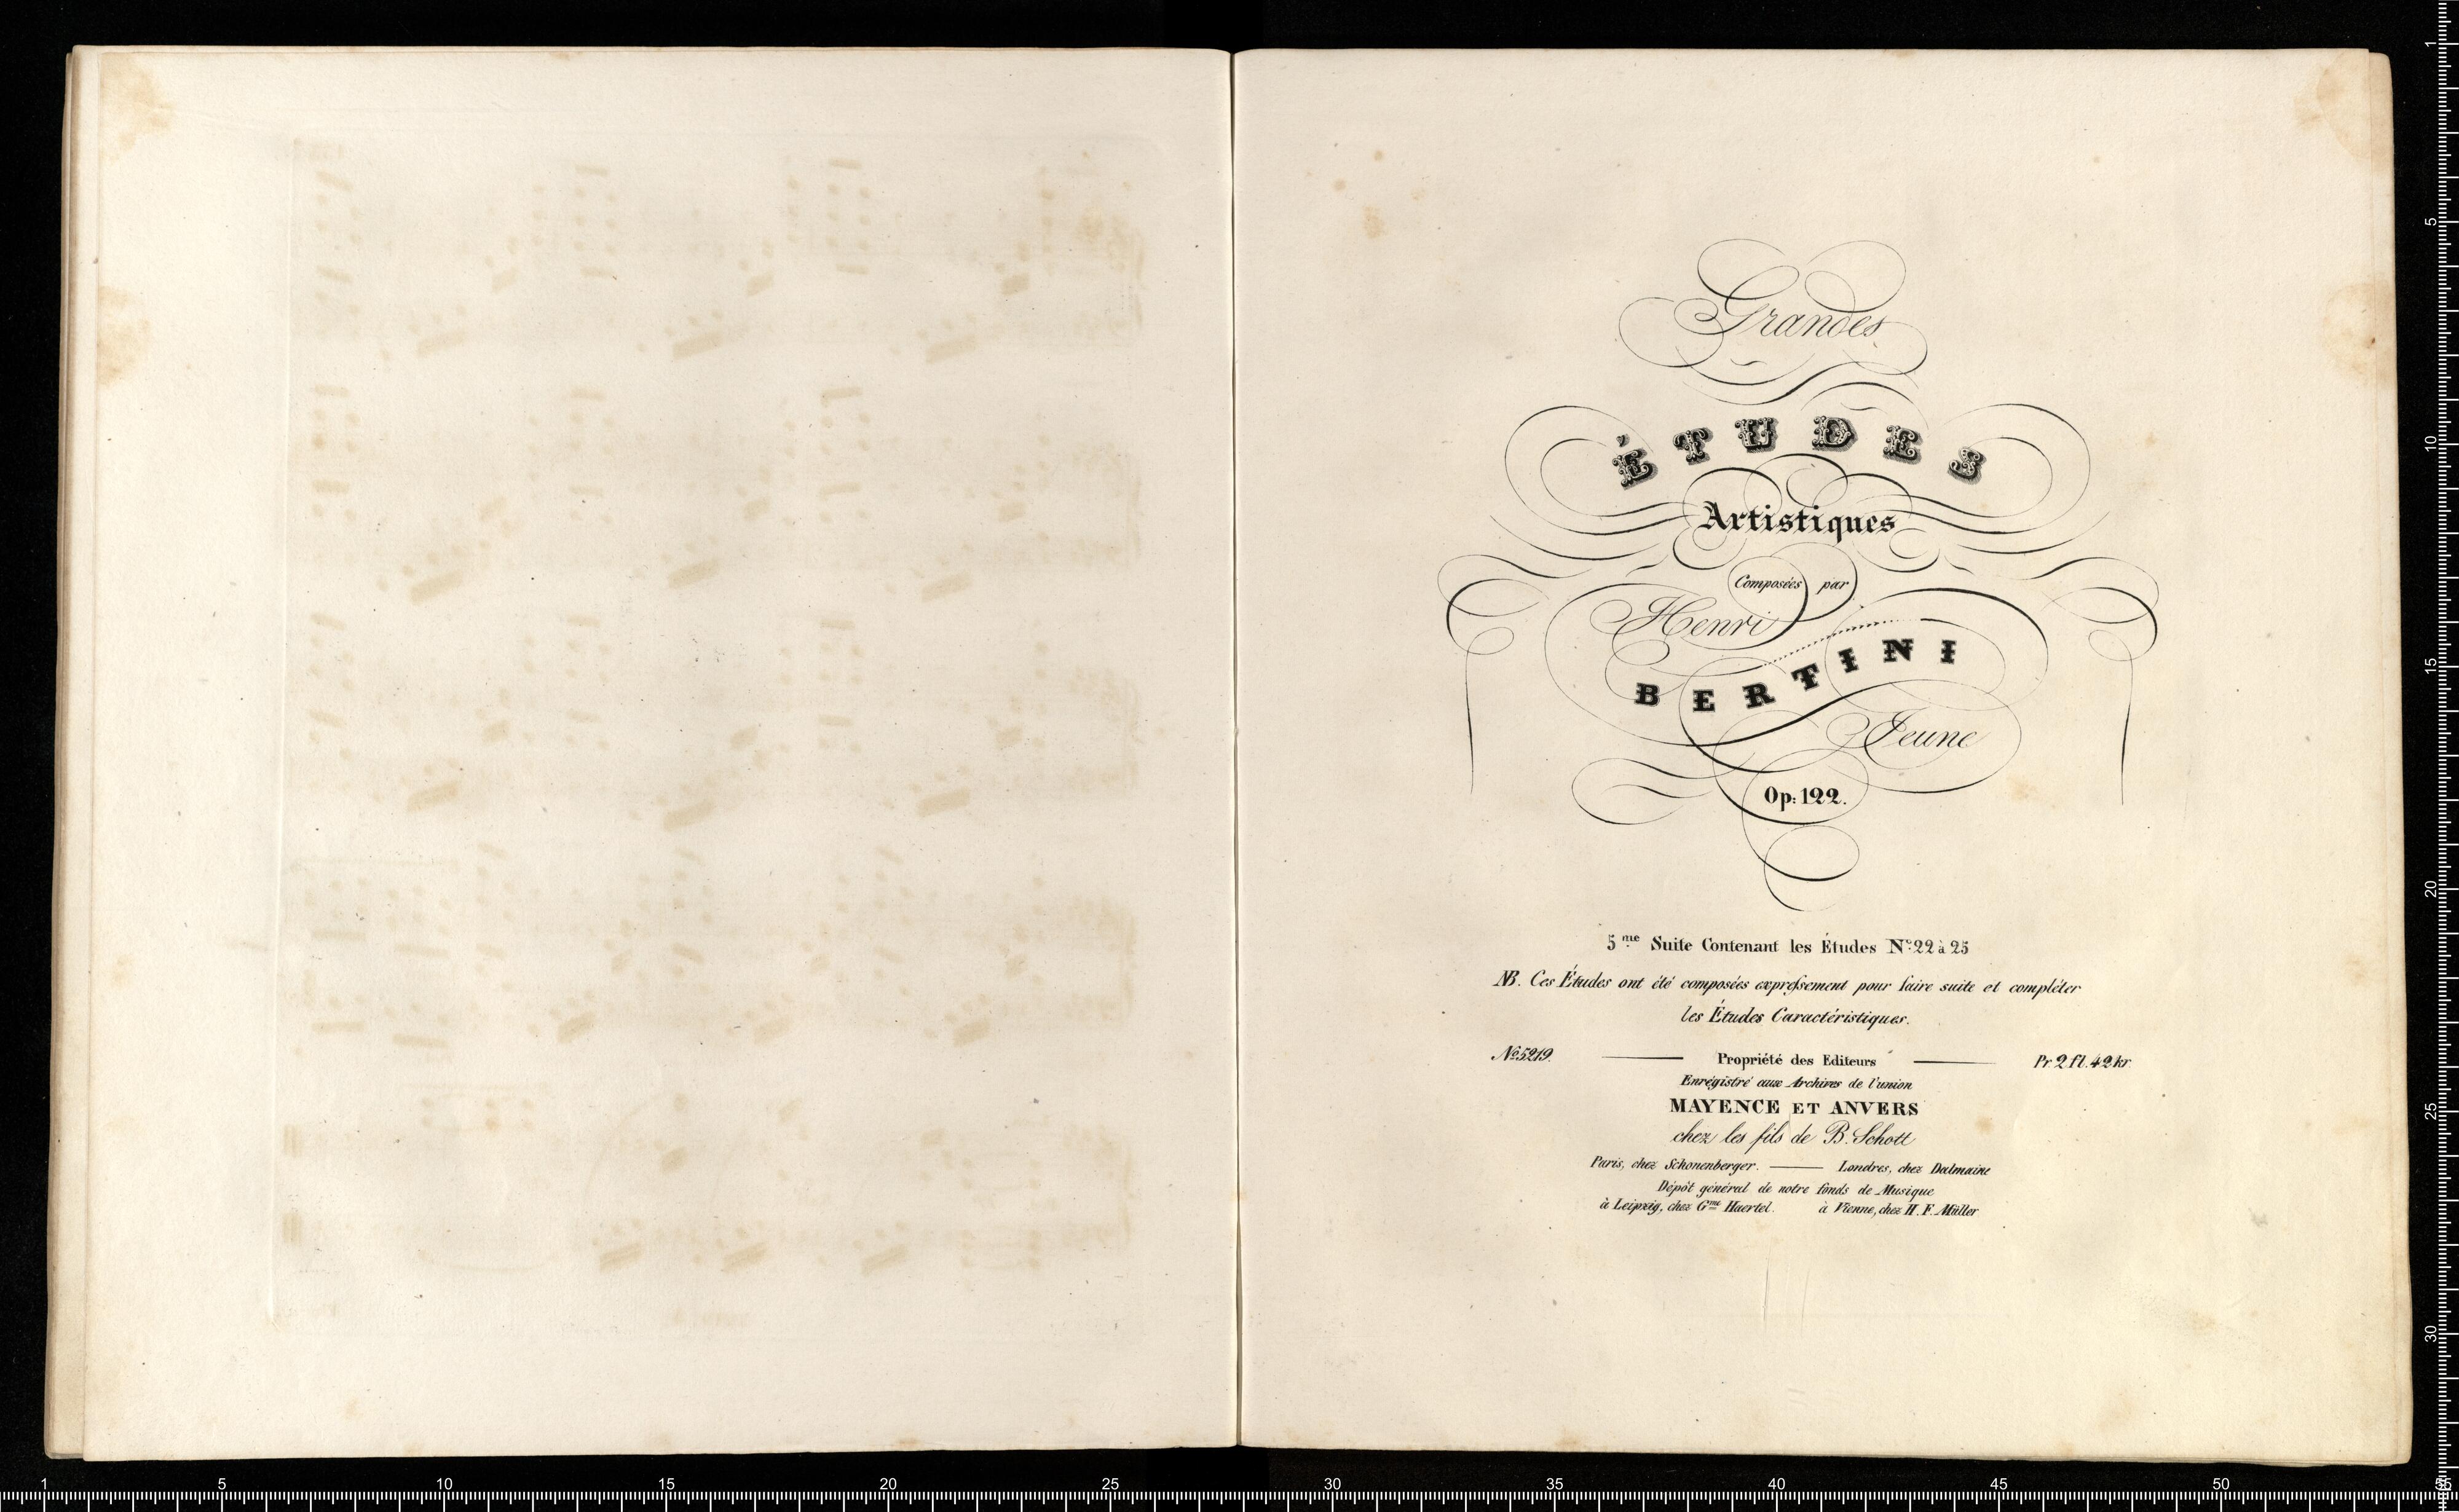 Grandes
ÉTUDES
Artistiques
Composées par
Henri
BERTINI
Jeune
Op: 122.
5me Suite Contenant les Études No 22 à 25
NB. Ces Études ont été composées expressement pour faire suite et compléter
les Études Caractéristiques.
No 5219. Propriété des Editeurs Pr. 2 fl. 42 kr.
Enrégistré aux Archives de l'union
MAYENCE ET ANVERS
chez les fils de B. Schott
Paris, chez Schonenberger. Londres, chez Dalmaine
Dépôt général de notre fonds de Musique
à Leipzig, chez Gme Haertel. à Vienne, chez H. F. Müller
1 5 10 15 20 25 30 35 40 45 50 55
1 5 10 15 20 25 30